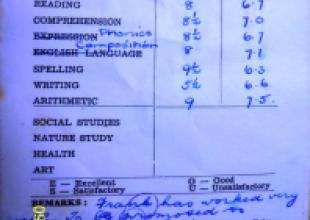 READING 8 6.7
COMPREHENSION 8½ 7.0
EXPRESSION Phonics 8½ 6.7
ENGLISH Composition LANGUAGE 8 7.1
SPELLING 9½ 6.3
WRITING 5½ 6.6
ARITHMETIC 9 7.5
SOCIAL STUDIES
NATURE STUDY
HEALTH
ART
E — Excellent G — Good
S — Satisfactory U — Unsatisfactory
REMARKS Frank has worked very
To be promoted